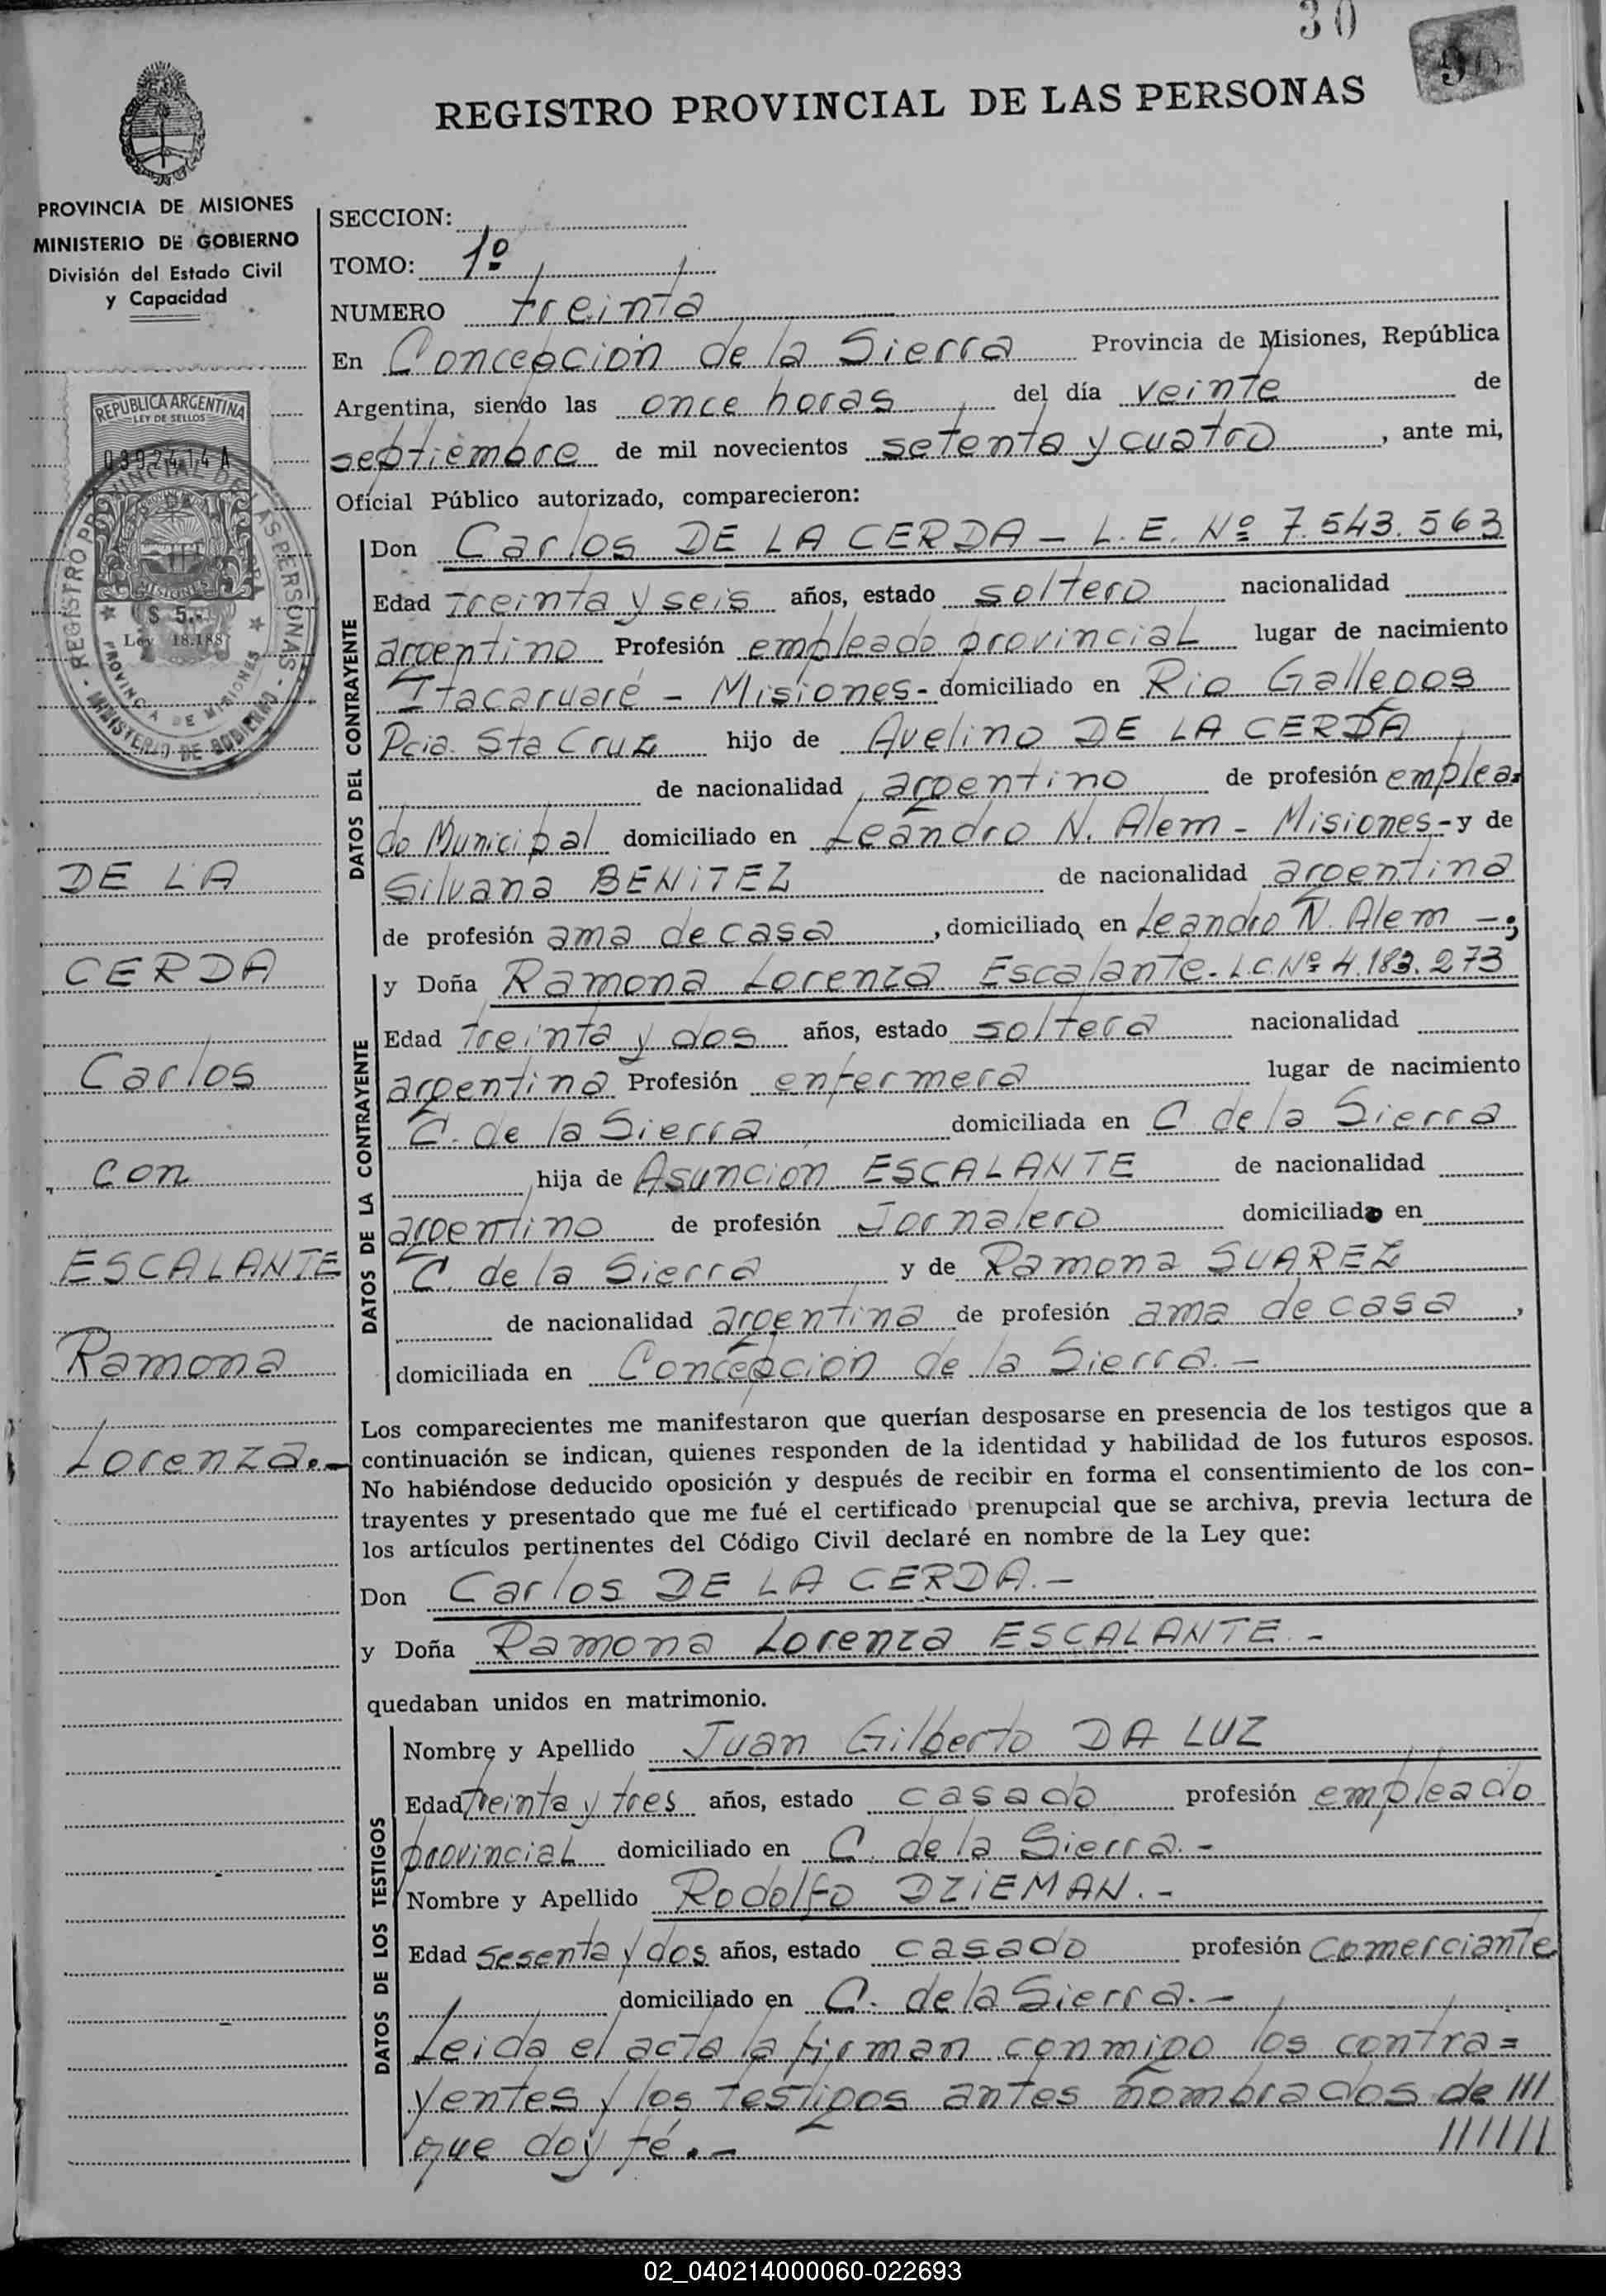 30
90
REGISTRO PROVINCIAL DE LAS PERSONAS
PROVINCIA DE MISIONES
MINISTERIO DE GOBIERNO
División del Estado Civil
y Capacidad
REPUBLICA ARGENTINA
LEY DE SELLOS
0392414 A
MISIONES
$ 5.
Ley 18.188
REGISTRO PROVINCIAL DE LAS PERSONAS - MINISTERIO DE GOBIERNO -
PROVINCIA DE MISIONES
DE LA
CERDA
Carlos
con
ESCALANTE
Ramona
Lorenza.-
SECCION:
TOMO: 1º
NUMERO treinta
En Concepción de la Sierra Provincia de Misiones, República
Argentina, siendo las once horas del día veinte de
septiembre de mil novecientos setenta y cuatro, ante mi,
Oficial Público autorizado, comparecieron:
DATOS DEL CONTRAYENTE
Don Carlos DE LA CERDA - L.E. Nº 7.543.563
Edad treinta y seis años, estado soltero nacionalidad
argentino Profesión empleado provincial lugar de nacimiento
Itacaruaré - Misiones- domiciliado en Rio Gallegos
Pcia. Sta Cruz hijo de Avelino DE LA CERDA
de nacionalidad argentino de profesión emplea=
do Municipal domiciliado en Leandro N. Alem - Misiones - y de
Silvana BENiTEZ de nacionalidad argentina
de profesión ama de casa, domiciliada en Leandro N. Alem -;
DATOS DE LA CONTRAYENTE
y Doña Ramona Lorenza Escalante - L.C. Nº 4.183.273
Edad treinta y dos años, estado soltera nacionalidad
argentina Profesión enfermera lugar de nacimiento
C. de la Sierra domiciliada en C. de la Sierra
hija de Asunción ESCALANTE de nacionalidad
argentino de profesión Jornalero domiciliado en
C. de la Sierra y de Ramona SUAREZ
de nacionalidad argentina de profesión ama de casa,
domiciliada en Concepción de la Sierra.-
Los comparecientes me manifestaron que querían desposarse en presencia de los testigos que a
continuación se indican, quienes responden de la identidad y habilidad de los futuros esposos.
No habiéndose deducido oposición y después de recibir en forma el consentimiento de los con-
trayentes y presentado que me fué el certificado prenupcial que se archiva, previa lectura de
los artículos pertinentes del Código Civil declaré en nombre de la Ley que:
Don Carlos DE LA CERDA.-
y Doña Ramona Lorenza ESCALANTE.-
quedaban unidos en matrimonio.
DATOS DE LOS TESTIGOS
Nombre y Apellido Juan Gilberto DA LUZ
Edad treinta y tres años, estado casado profesión empleado
provincial domiciliado en C. de la Sierra.-
Nombre y Apellido Rodolfo DZiEMAN.-
Edad sesenta y dos años, estado casado profesión comerciante
domiciliado en C. de la Sierra.-
Leida el acta la firman conmigo los contra=
yentes y los testigos antes nombrados de ///
que doy fé.- //////
02_040214000060-022693